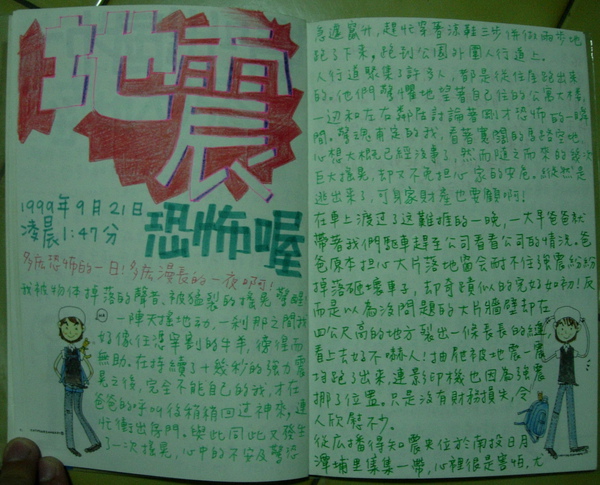 地震
1999年9月21日
凌晨1:47分
恐怖喔
多麼恐怖的一日!多麼漫長的一夜啊!
我被物体掉落的聲音、被猛裂的搖晃驚醒
一陣天搖地动,一剎那之間我
好像任憑宰割的牛羊,徬徨而
無助。在持續了十幾秒的強力震
晃之後,完全不能自己的我,才在
爸爸的呼叫後稍稍回过神來,連
忙衝出房門。與此同此又發生
了一次搖晃,心中的不安及驚恐
急遽竄升,趕忙穿著涼鞋三步併做兩步地
跑了下來,跑到公園外圍人行道上。
人行道聚集了許多人,都是從住屋跑出來
的。他們驚懼地望著自己住的公寓大樓,
一边和左右鄰居討論著剛才恐怖的一瞬
間。驚魂甫定的我,看著寬闊的馬路空地,
心想大概已經沒事了,然而隨之而來的幾次
巨大搖晃,却又不免担心家的安危。縱然是
逃出來了,可身家財產也要顧啊!
在車上渡过了这難捱的一晚,一大早爸爸就
帶著我們驅車趕至公司看看公司的情況。爸
爸原本担心大片落地窗会耐不住強震紛紛
掉落砸壞車子,却奇蹟似的完好如初!反
而是以為沒問題的大片牆壁却在
四公尺高的地方裂出一條長長的縫
看上去好不嚇人!抽屜被地震一震
均跑了出來,連影印機也因為強震
挪了位置。只是沒有財務損失,令
人欣慰不少。
從広播得知震央位於南投日月
潭埔里集集一帶,心裡很是害怕。尤